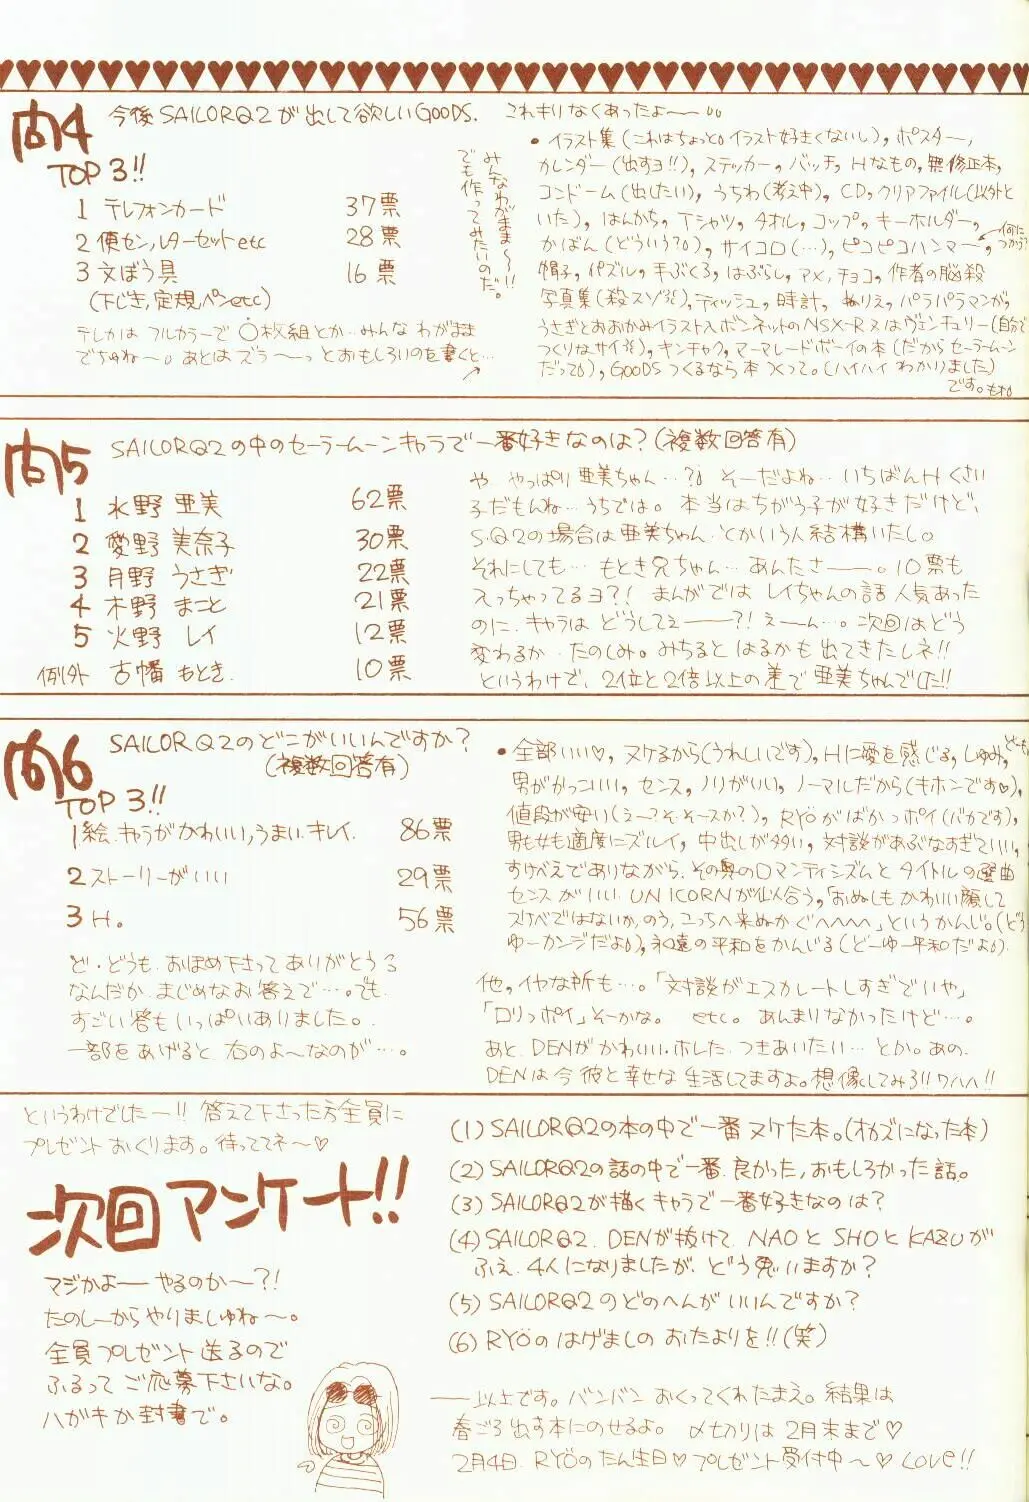 問4 今後SAILORQ2が出して欲しいGOODS.
TOP 3!!
1 テレフォンカード 37票
2 便セン,レターセットetc 28票
3 文ぼう具 16票
(下じき,定規,ペンetc)
みんなわがまま〜!!
でも作ってみたいのだ。
テレカは フルカラーで ○枚組とか…みんな わがまま
でちゅね〜。あとは ズラ〜〜っと おもしろいのを書くと…
これキリなくあったよ〜〜
• イラスト集(これはちょっと。イラスト好きくないし), ポスター,
カレンダー(出すヨ!!), ステッカー, バッヂ, Hなもの, 無修正本,
コンドーム(出したい), うちわ(考え中), CD, クリアファイル(以外と
いた), はんかち, Tシャツ, タオル, コップ, キーホルダー,
かばん(どういう?), サイコロ(…), ピコピコハンマー, ←何につかう?
帽子, パズル, 手ぶくろ, はぶらし, アメ, チョコ, 作者の脳殺
写真集(殺スゾ), ティッシュ, 時計, ぬりえ, パラパラマンガ,
うさぎとおおかみイラスト入ボンネットのNSX-R又はヴェンチュリー(自分で
つくりなサイ), キンチャク, マーマレードボーイの本(だからセーラームーン
だって), GOODSつくるなら本つくって。(ハイハイ わかりました)
です。
問5 SAILORQ2の中のセーラームーンキャラで一番好きなのは?(複数回答有)
1 水野 亜美 62票
2 愛野 美奈子 30票
3 月野 うさぎ 22票
4 木野 まこと 21票
5 火野 レイ 12票
例外 古幡 もとき. 10票
や, やっぱり 亜美ちゃん…?! そーだよね… いちばんHくさい
子だもんね… うちでは。本当はちがう子が好きだけど、
S.Q2の場合は亜美ちゃん とかいう人 結構いたし。
それにしても… もとき兄ちゃん… あんたさ――。10票も
入っちゃってるヨ?! まんがでは レイちゃんの話 人気あった
のに, キャラは どうしてえ――?! え〜ん…。次回はどう
変わるか たのしみ。みちると はるかも 出てきたしネ!!
というわけで, 2位と2倍以上の差で 亜美ちゃんでした!!
問6 SAILORQ2のどこがいいんですか?
(複数回答有)
TOP 3!!
1 絵,キャラがかわいい,うまい,キレイ. 86票
2 ストーリーがいい 29票
3 H。 56票
ど・どうも, おほめ下さって ありがとう
なんだか まじめなお答えで…。でも,
すごい答もいっぱいありました。
一部を あげると 右のよ〜なのが…。
• 全部いい♡, ヌケるから(うれしいです), Hに愛を感じる, しゅみ,
男がかっこいい, センス, ノリがいい, ノーマルだから(キホンです♡),
値段が安い(え〜?そ,そースか?), RYÖがばかっポイ(バカです),
男も女も適度にズルイ, 中出しが多い, 対談があぶなすぎていい,
すけべえでありながら, その奥のロマンティシズムと タイトルの選曲
センスがいい, UNICORNが似合う,「おぬしもかわいい顔して
スケベではないか, のう, こっちへ来ぬかぐへへへへ」というかんじ。(どう
ゆーカンジだよ), 永遠の平和をかんじる(どーゆー平和だよ).
他, イヤな所も…。「対談がエスカレートしすぎでいや」
「ロリっポイ」そーかな。 etc. あんまりなかったけど…。
あと, DENが かわいい・ホレた, つきあいたい… とか。あの,
DENは 今 彼と幸せな 生活してますよ。想像してみろ!! ワハハ!!
というわけでした〜!! 答えて下さった方全員に
プレゼント おくります。待っててネ〜♡
次回アンケート!!
マジかよ―― やるのか〜?!
たのし〜からやりましゅね〜。
全員プレゼント 送るので
ふるって ご応募下さいな。
ハガキか封書で。
(1) SAILORQ2の本の中で一番 ヌケた本。(オカズになった本)
(2) SAILORQ2の話の中で一番, 良かった,おもしろかった話。
(3) SAILORQ2が描くキャラで一番好きなのは?
(4) SAILORQ2. DENが抜けて, NAOと SHOと KAZUが
ふえ, 4人になりましたが, どう思いますか?
(5) SAILORQ2のどのへんが いいんですか?
(6) RYÖの はげましの おたよりを!!(笑)
――以上です。バンバン おくってくれたまえ。結果は
春ごろ出す本にのせるよ。〆切りは 2月末まで♡
2月4日, RYÖのたん生日♡ プレゼント受付中〜♡ LOVe!!